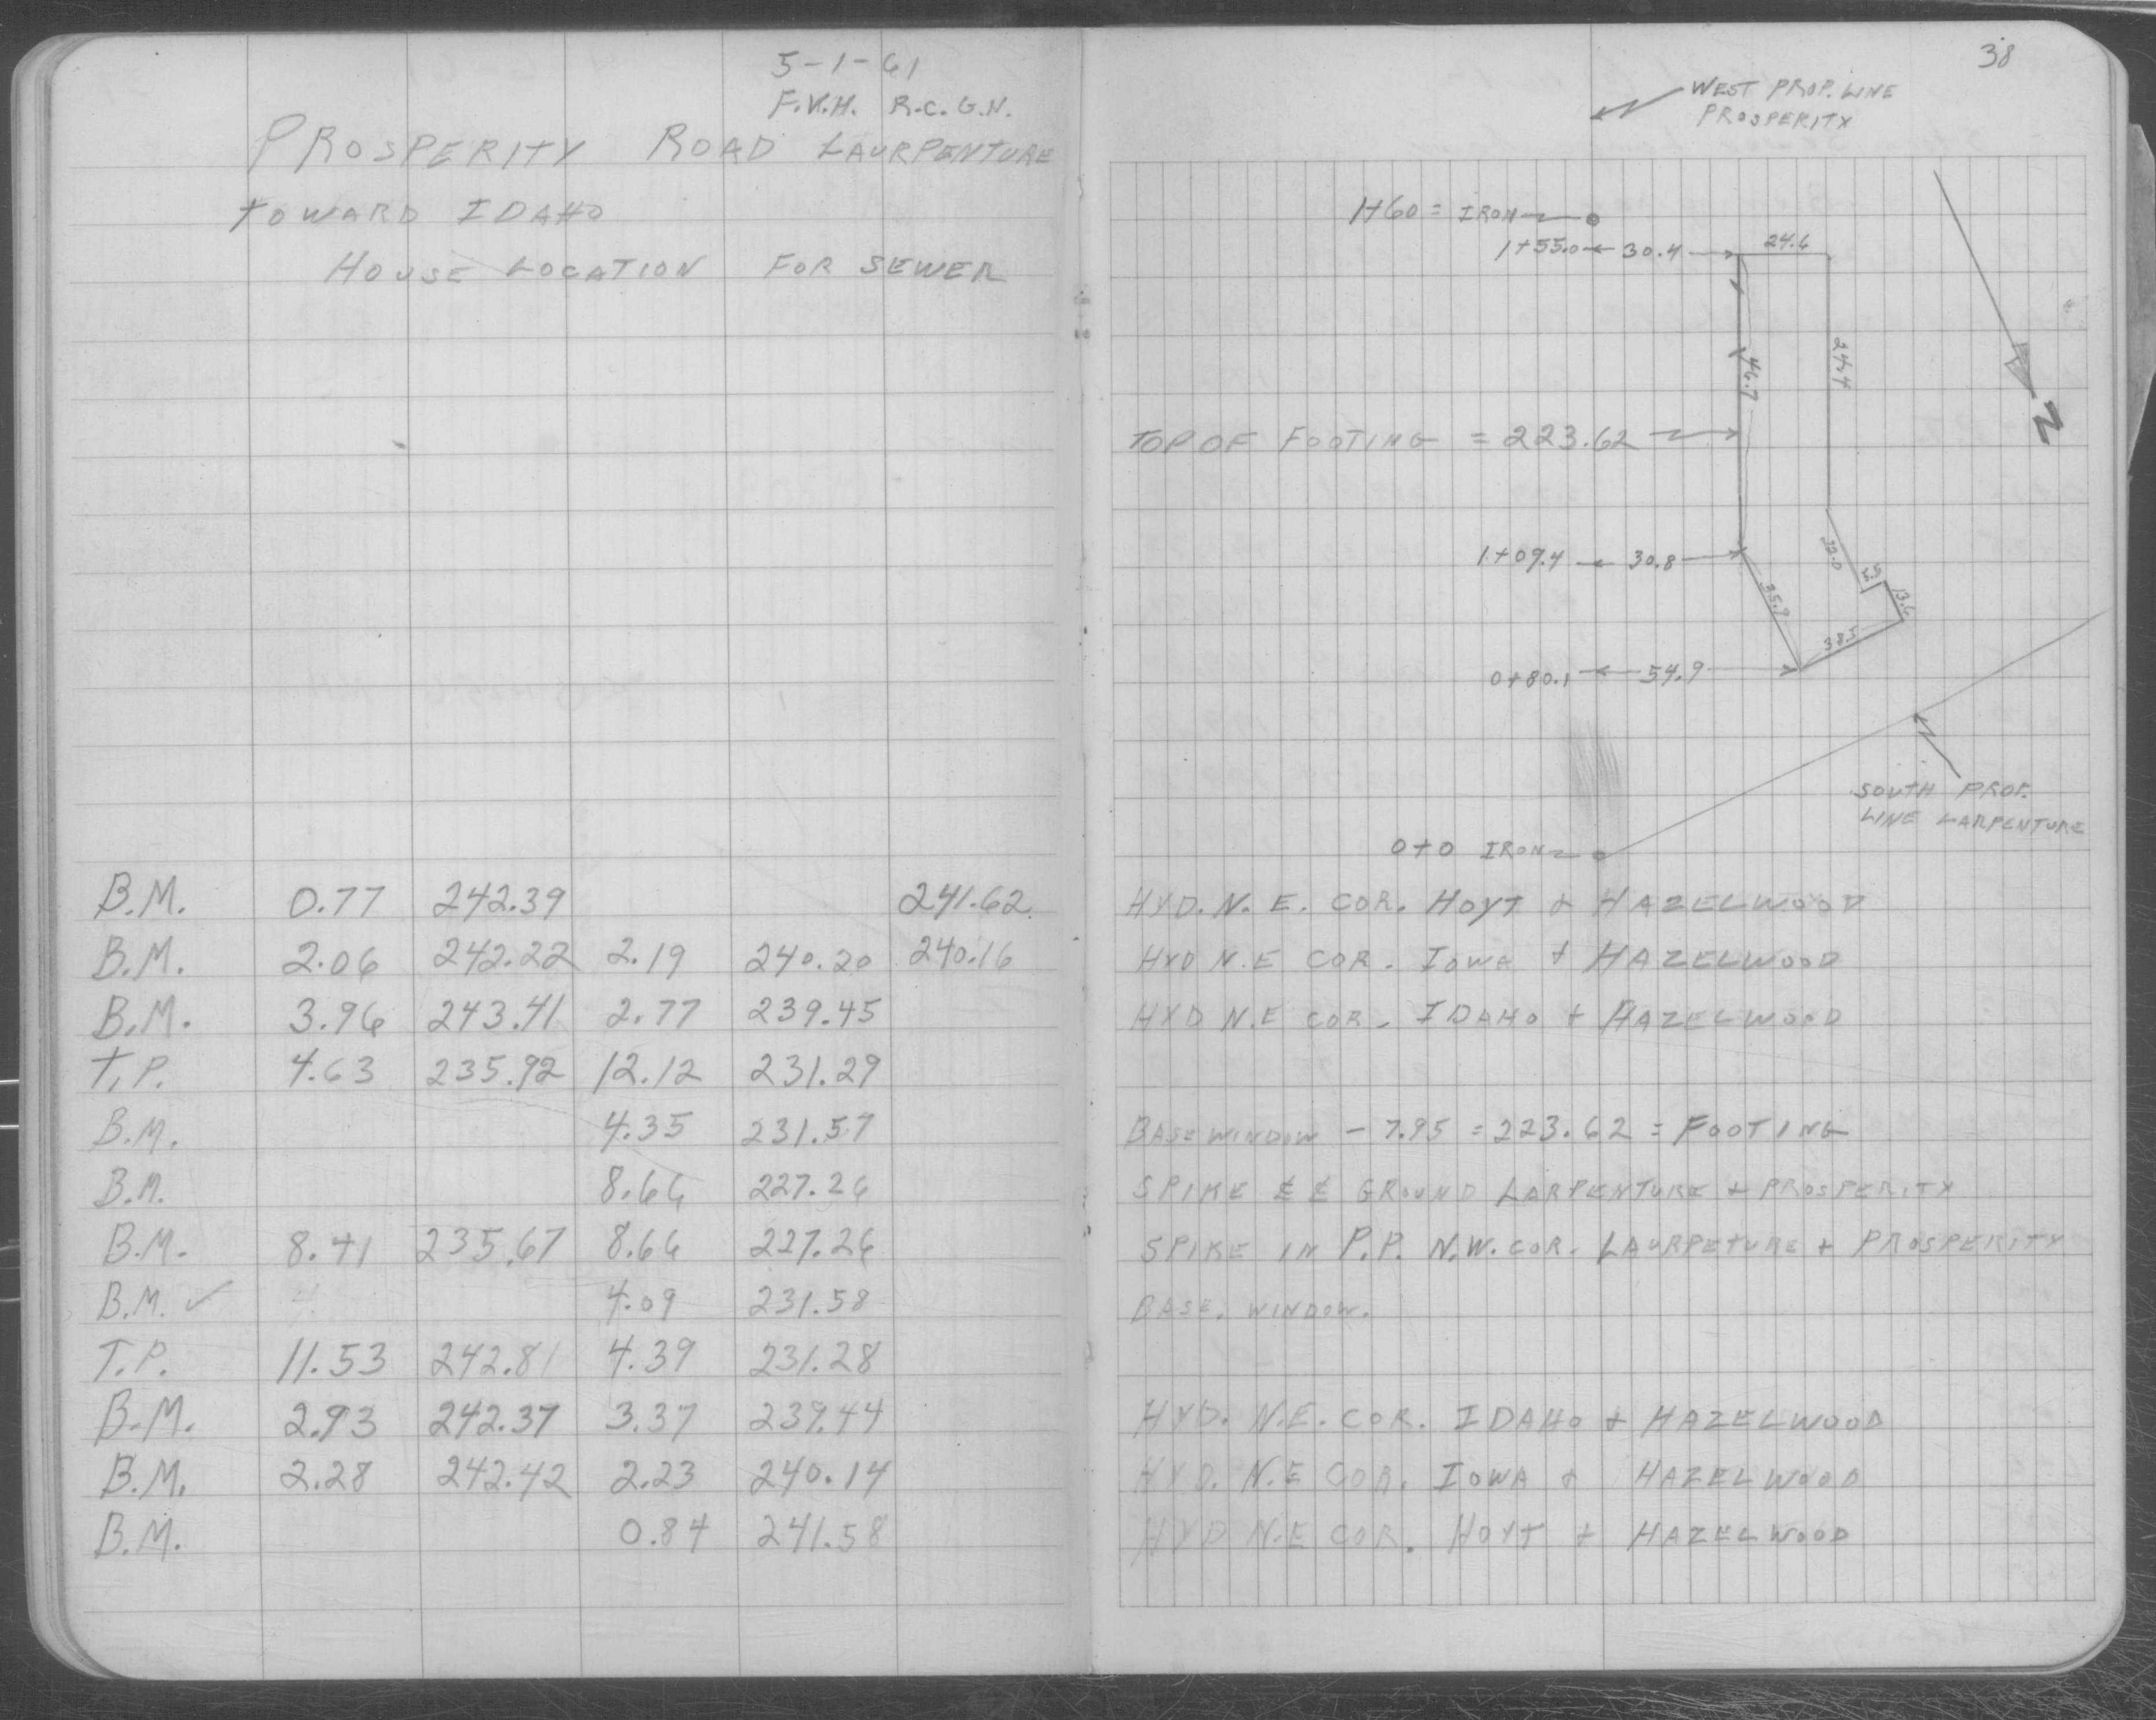 5-1-61
F.V.H. R.C. G.N.
PROSPERITY ROAD LAURPENTURE
TOWARD IDAHO
HOUSE LOCATION FOR SEWER
B.M. 0.77 242.39 241.62
B.M. 2.06 242.22 2.19 240.20 240.16
B.M. 3.96 243.41 2.77 239.45
T.P. 4.63 235.92 12.12 231.29
B.M. 4.35 231.57
B.M. 8.66 227.26
B.M. 8.41 235.67 8.66 227.26
B.M. ✓ 4.09 231.58
T.P. 11.53 242.81 4.39 231.28
B.M. 2.93 242.37 3.37 239.44
B.M. 2.28 242.42 2.23 240.14
B.M. 0.84 241.58
38
WEST PROP. LINE
PROSPERITY
1+60 = IRON
1+55.0 30.4 24.6
46.7
N
TOP OF FOOTING = 223.62
1+09.4 30.8
32.0
13.6
38.5
0+80.1 54.9
SOUTH PROP.
LINE LARPENTURE
0+0 IRON
HYD. N.E. COR. HOYT & HAZELWOOD
HYD N.E COR. IOWA & HAZELWOOD
HYD N.E COR. IDAHO & HAZELWOOD
BASE WINDOW - 7.95 = 223.62 = FOOTING
SPIKE GROUND LARPENTURE & PROSPERITY
SPIKE IN P.P. N.W. COR. LAURPETURE & PROSPERITY
BASE. WINDOW.
HYD. N.E. COR. IDAHO & HAZELWOOD
HYD. N.E COR. IOWA & HAZELWOOD
HYD N.E COR. HOYT & HAZELWOOD